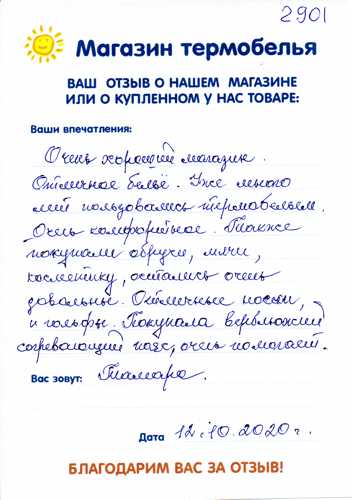 2901
Магазин термобелья
ВАШ ОТЗЫВ О НАШЕМ МАГАЗИНЕ
ИЛИ О КУПЛЕННОМ У НАС ТОВАРЕ:
Ваши впечатления:
Очень хороший магазин.
Отличное бельё. Уже много
лет пользовались термобельем.
Очень комфортное. Также
покупали обручи, мячи,
косметику, остались очень
довольны. Отличные носки,
и гольфы. Покупала верблюжий
согревающий пояс, очень помогает.
Вас зовут: Тамара.
Дата 12.10.2020 г.
БЛАГОДАРИМ ВАС ЗА ОТЗЫВ!